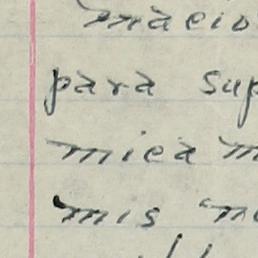 macio
para sup
mica m
mis "m